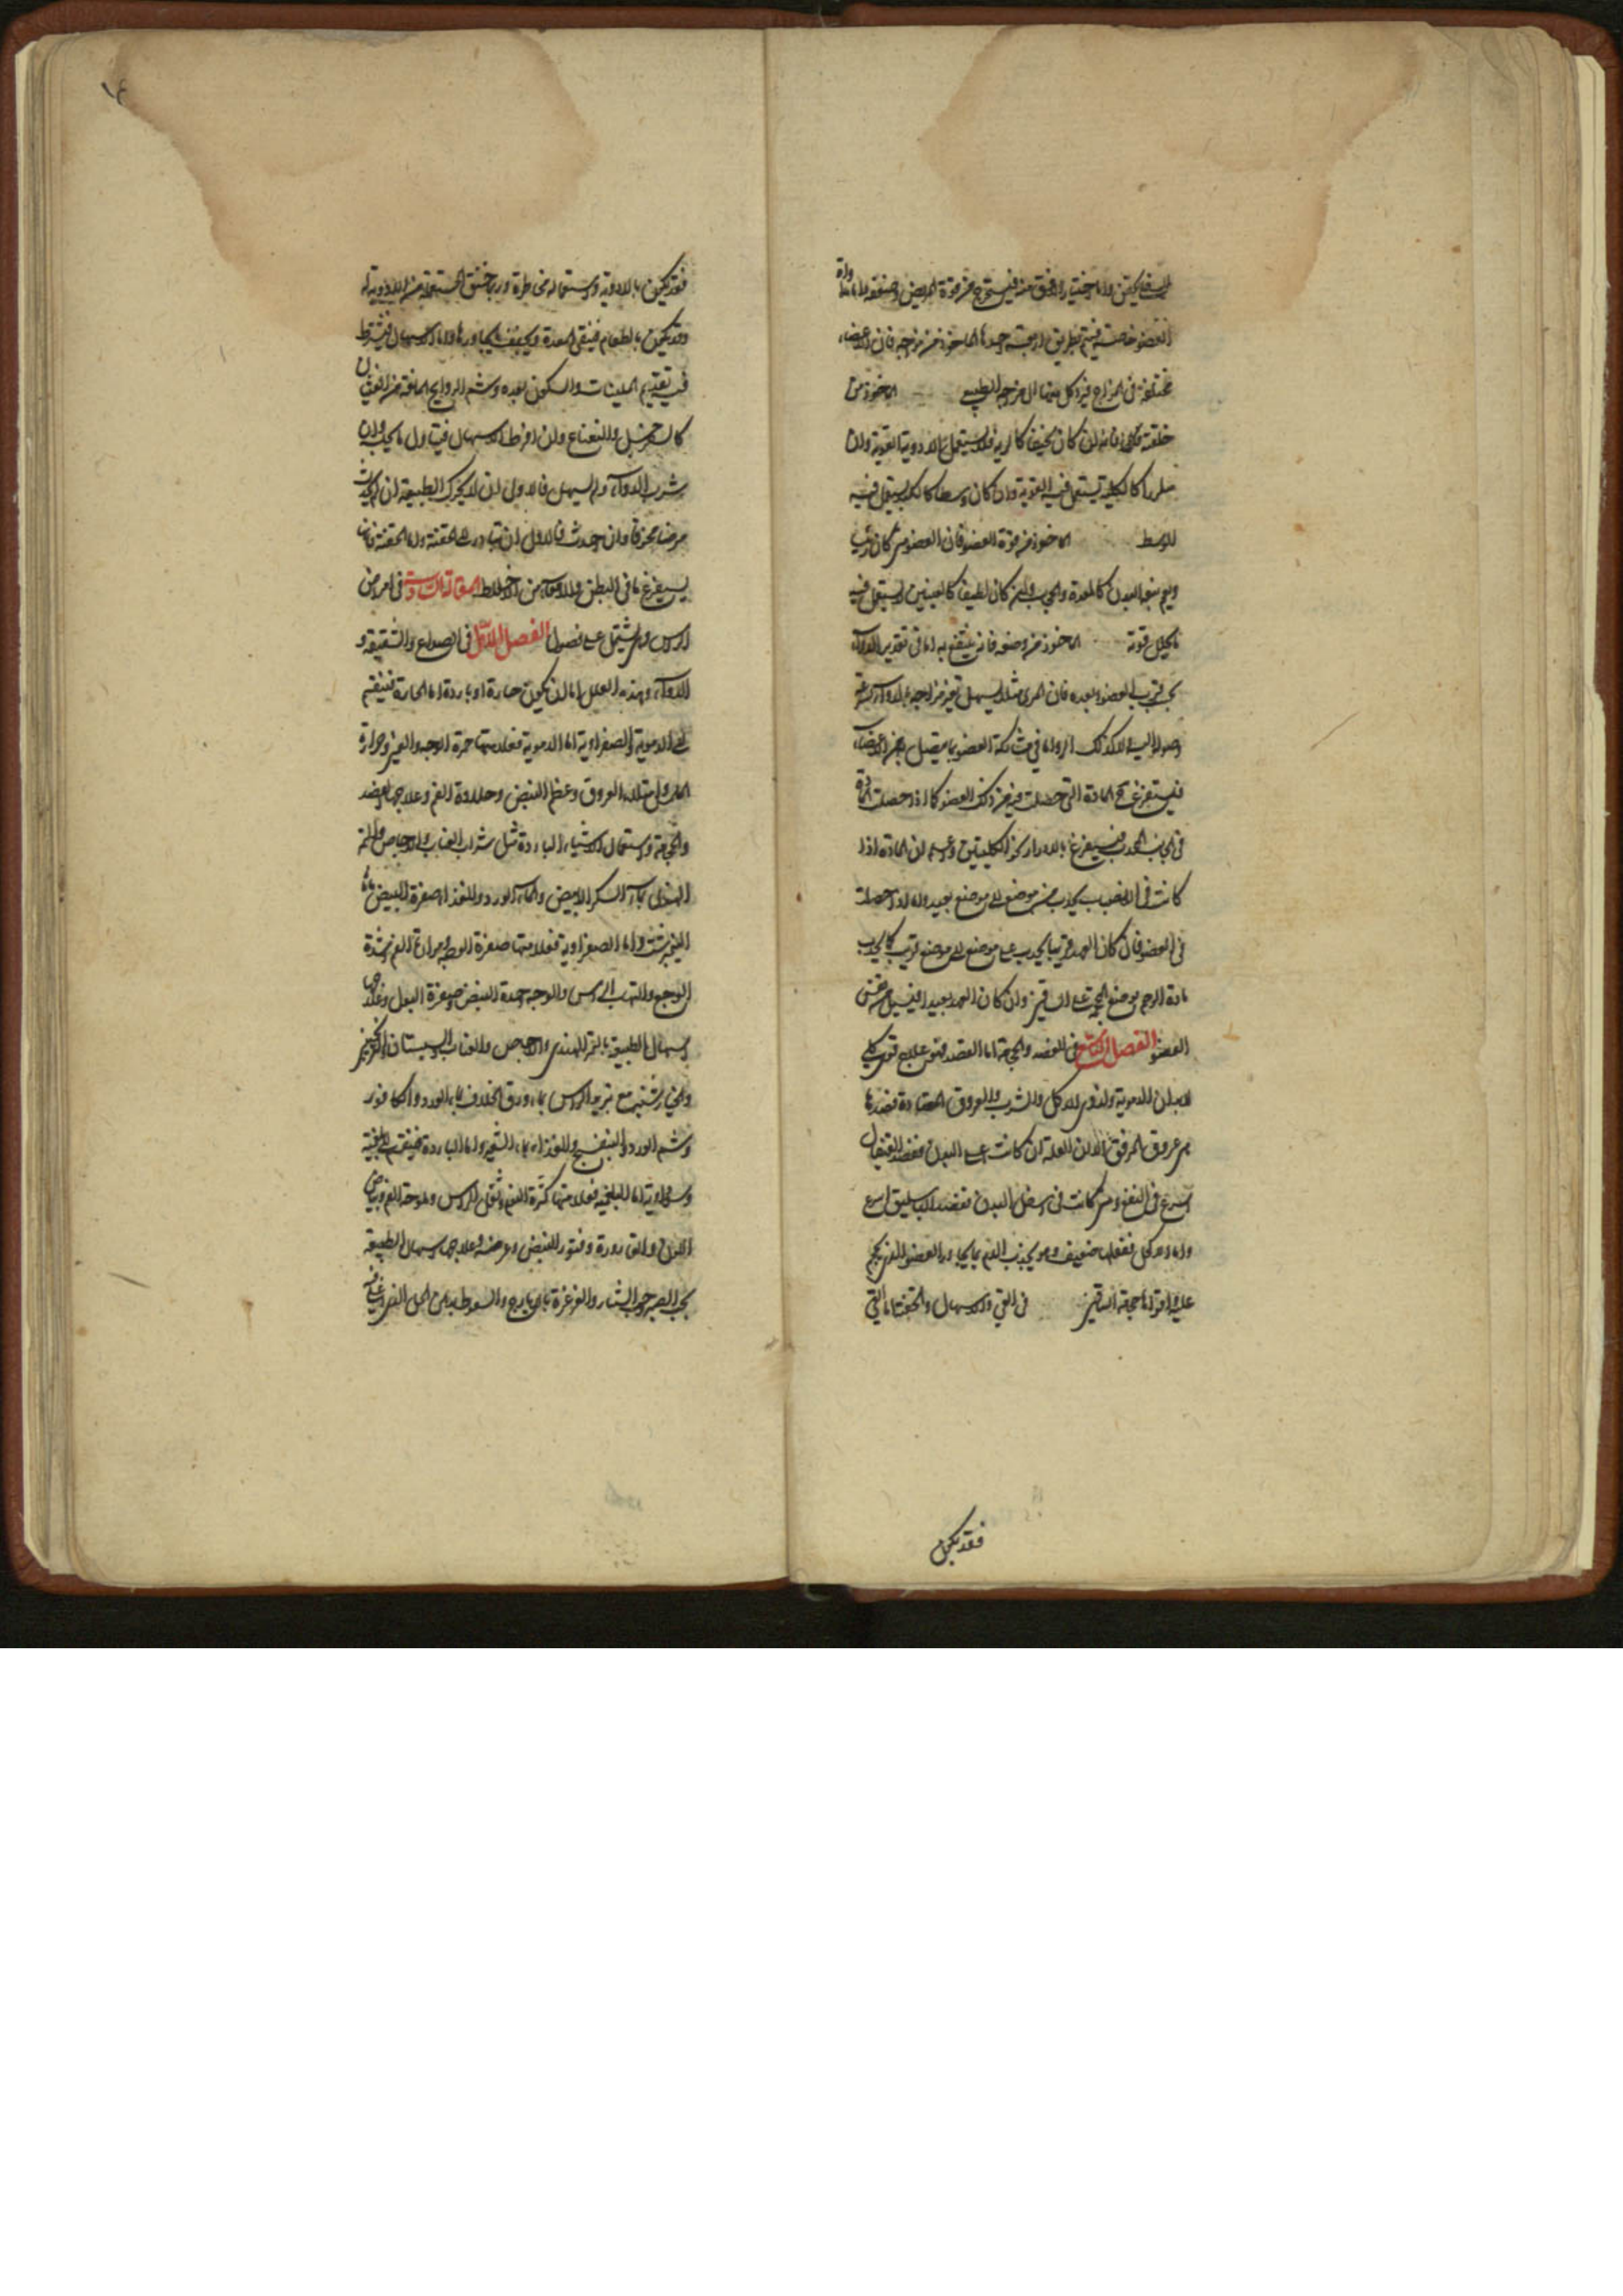 العضو خاصة فيتم بطريق اربعة احدها الماخوذ من مزاجه فان الاعضاء
مختلفة فى المزاج فيرد كل منها الى مزاجه الطبيعى الماخوذ من
خلقته فانه ان كان سخيفا كالرية فلا يستعمل الادوية القوية وان
ملززا كالكلية يستعمل فيه القوية وان كان وسطا كالكبد يستعمل فيه
الوسط الماخوذ من قوة العضو فان العضو متى كان رئيسا
ويعم نفعه البدن كالمعدة والحجاب وان كان لطيفا كالعينين لا يستعمل فيه
ما يحلل قوته الماخوذ من وضعه فانه ينتفع به اما فى تقدير الدواء
بحسب قرب العضو وبعده فان المرى مثلا يسهل تغير مزاجه بالدواء لسرعة
وصوله اليه لا كذلك الرية واما فى مشاركة العضو بما يتصل به من الاعضاء
فيستفرغ المادة التى حصلت فيه من ذلك العضو كما اذا حصلت المادة
فى الجانب المحدب فيستفرغ بالادرار نحو الكليتين واعلم ان المادة اذا
كانت فى الانصباب يجذب من موضع الى موضع بعيد واما اذا حصلت
فى العضو فان كان العهد قريبا يجذب من موضع الى موضع قريب كما يجذب
مادة الرحم بوضع المحجمة على الساقين وان كان العهد بعيدا فيسيل من نفس
العضو الفصل التاسع فى الفصد والحجامة اما الفصد فهو علاج قوى لكل
الابدان الدموية ولذوى الاكل والشرب والعروق المعتادة فصدها
من عروق المرفق الا ان العلة ان كانت اعلى البدن ففصد القيفال
اسرع فى النفع ومتى كانت فى اسفل البدن ففصد الباسليق اسرع
واما الاكحل ففعله ضعيف وهو يجذب الدم مما يجاور العضو الذى يحجم
عليه واقواها حجامة الساقين فى القى والاسهال والحقنة اما القى
فقد يكون
فقد يكون بالادوية واستعماله مخاطرة وربما خنق المستعمل من الادوية له
وقد يكون بالطعام فينقى المعدة ويجفف ما يجاورها واما الاسهال فيشترط
فيه تقديم الملينات والسكون بعده وشم الروايح المانعة من الغثيان
كالسفرجل والنعناع وان افرط الاسهال فيتناول ما يحبسه وان
شرب الدواء ولم يسهل فالاولى ان لا يحرك الطبيعة ان لم يحدث
مرضا مخوفا وان احدث فالاولى ان يتبادر الى الحقنة واما الحقنة فانها
يستفرغ ما فى البطن والامعاء من الاخلاط المقالة الثالثة فى امراض
الراس ويشتمل على فصول الفصل الاول فى الصداع والشقيقة و
الدوار وهذه العلل اما ان يكون حارة او باردة اما الحارة فينقسم
الى الدموية والصفراوية اما الدموية فعلامتها حمرة الوجه والعين وحرارة
الملمس وامتلاء العروق وعظم النبض وحلاوة الفم وعلاجها الفصد
والحجامة واستعمال الاشياء الباردة مثل شراب العناب والاجاص والتمر
الهندى بماء السكر الابيض وماء الورد والغذاء صفرة البيض
النيمبرشت واما الصفراوية فعلامتها صفرة الوجه ومرارة الفم وشدة
الوجع والتهاب الراس والوجه وحدة النبض وصفرة البول وعلاجها
اسهال الطبيعة بالتمر الهندى والاجاص والعناب والسبستان والترنجبين
والخيارشنبر مع تبريد الراس بماء ورق الخلاف وماء الورد والكافور
وشم الورد والبنفسج والغذاء ماء الشعير واما الباردة فينقسم الى بلغمية
وسوداوية اما البلغمية فعلامتها كثرة النوم وثقل الراس وملوحة الفم وبياض
اللون والقارورة وفتور النبض وعرضه وعلاجها اسهال الطبيعة
بحب الصبر وحب الشبيار والغرغرة بايارج والسعوط بدهن